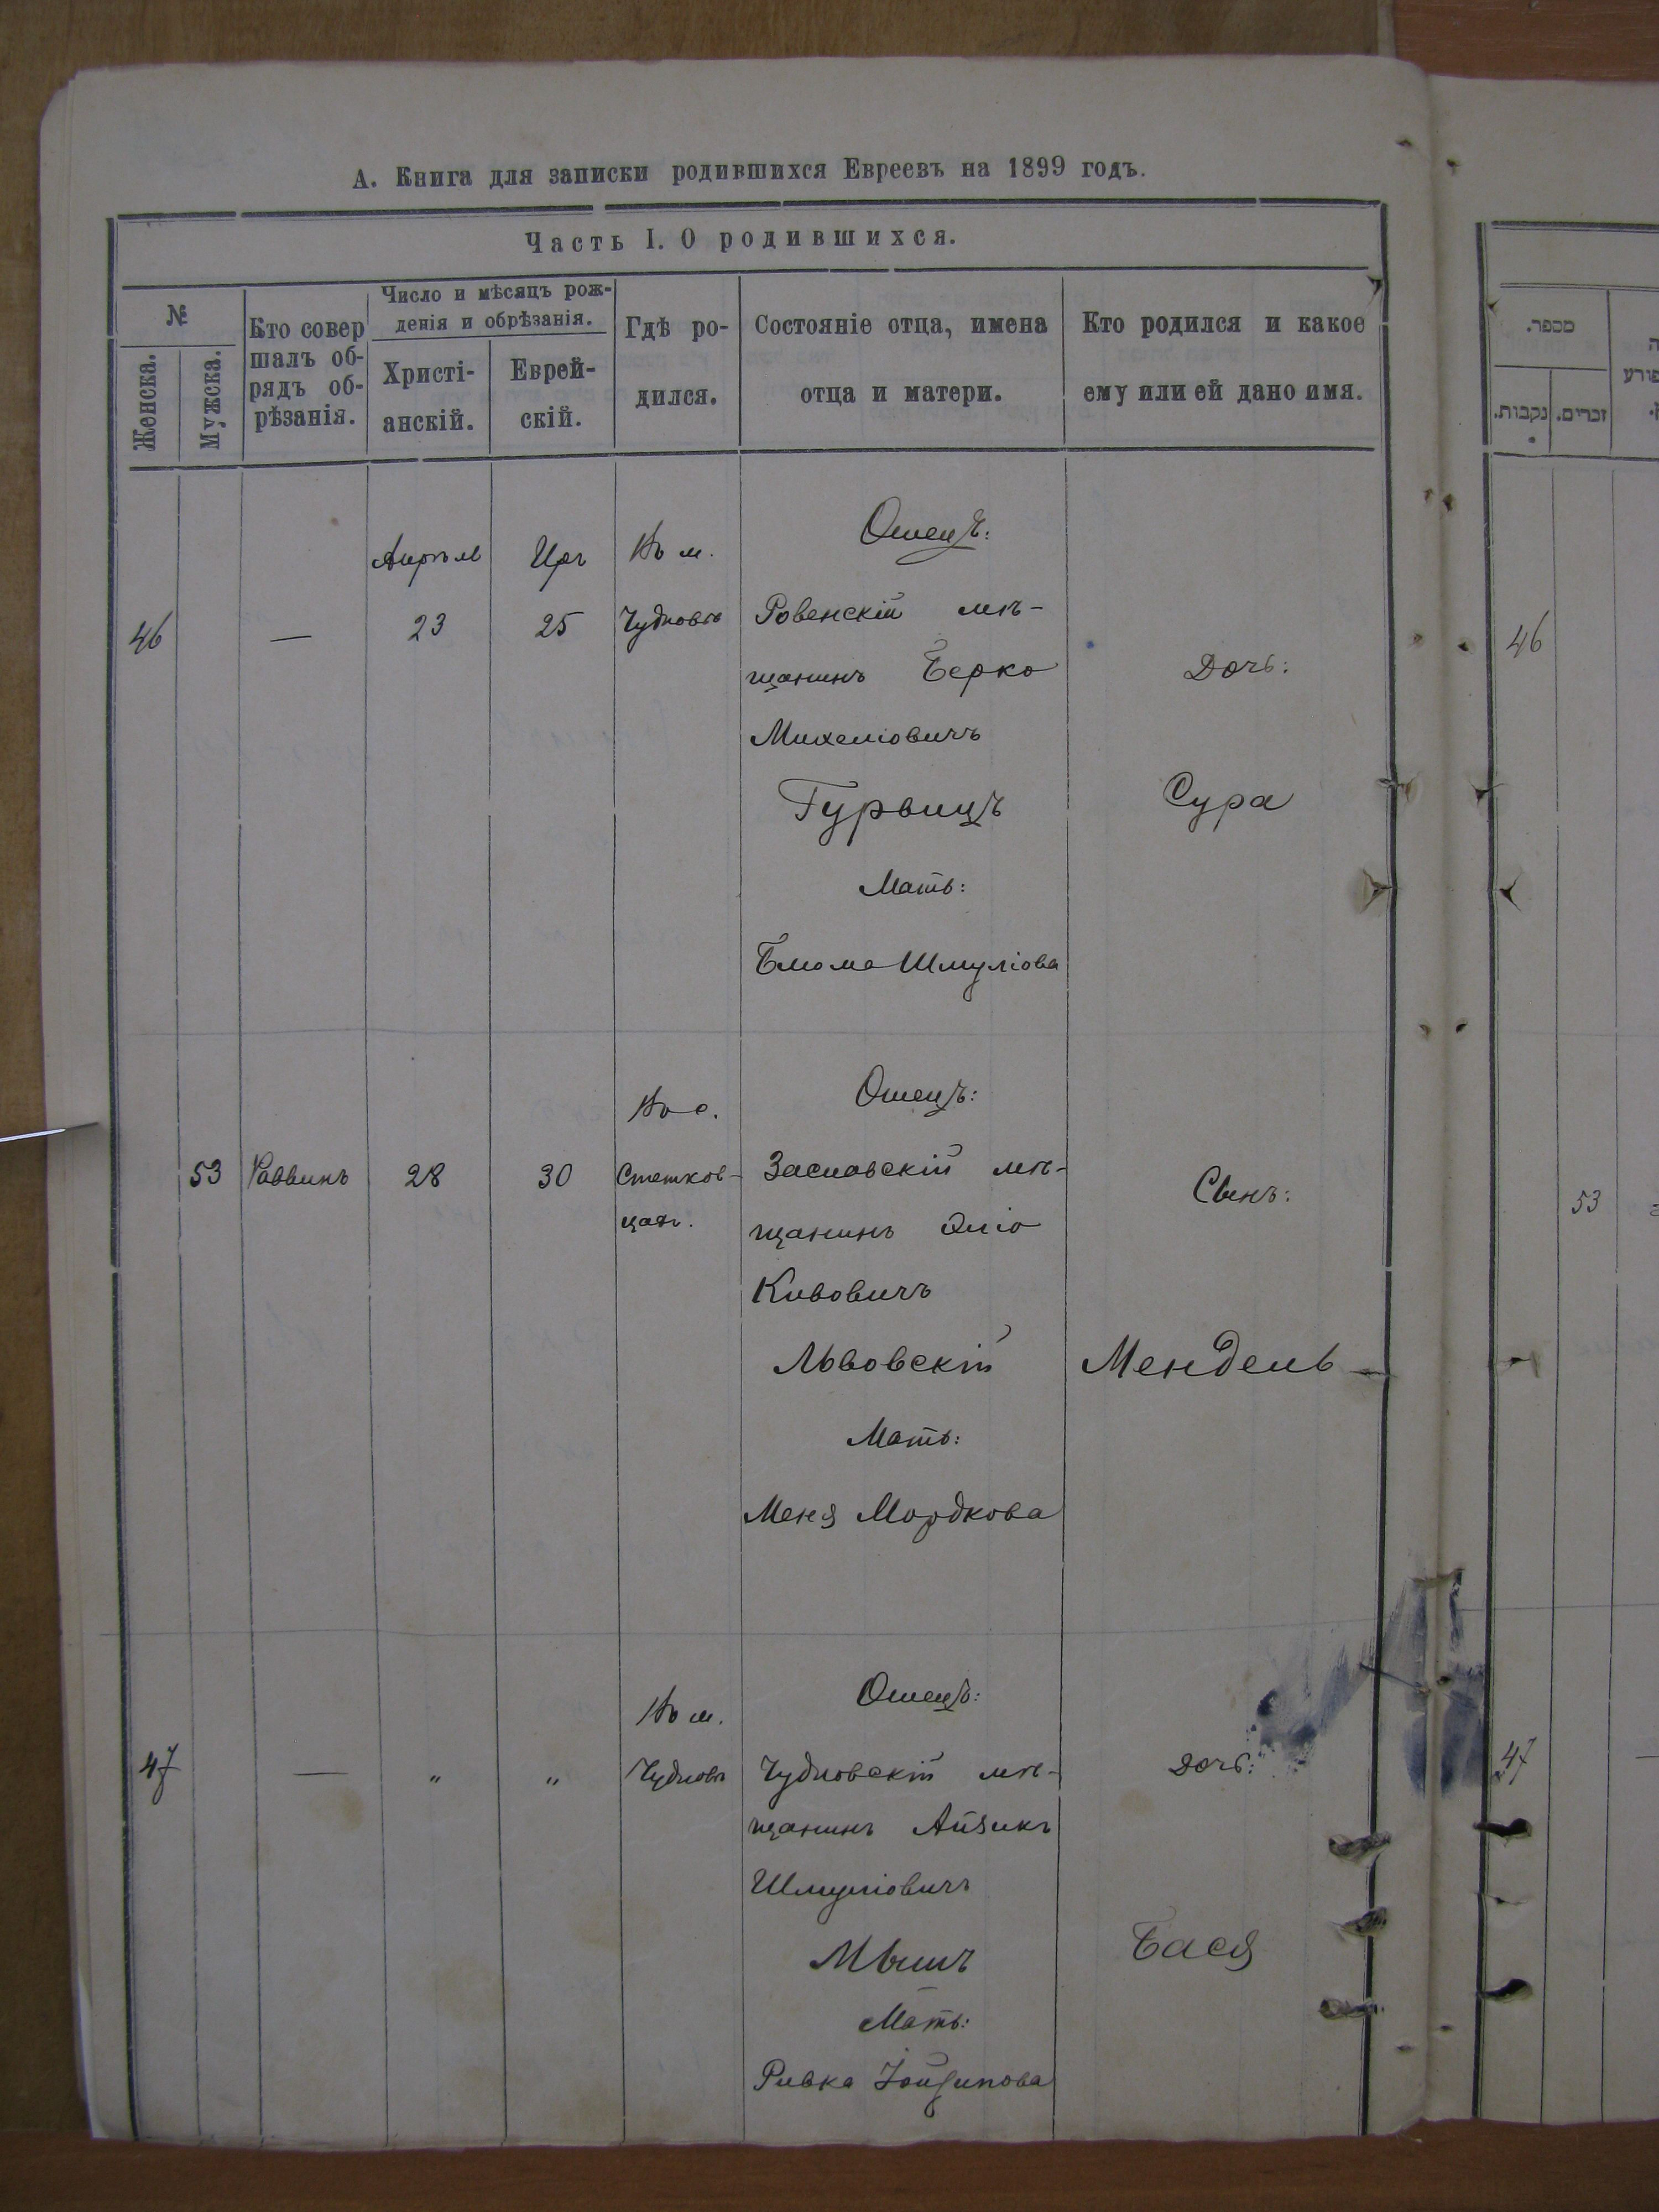 А. Книга для записки родившихся Евреевъ на 1899 годъ.
Часть I. О родившихся.
№
Женска.
Мужска.
Кто совер
шалъ об-
рядъ об-
рѣзанія.
Число и мѣсяцъ рож-
денія и обрѣзанія.
Христі-
анскій.
Еврей-
скій.
Гдѣ ро-
дился.
Состояніе отца, имена
отца и матери.
Кто родился и какое
ему или ей дано имя.
מספר.
נקבות.
זכרים.
46
—
23
25
Въ м.
Чудновѣ
Отецъ:
Ровенскій мѣ-
щанинъ Берко
Михеліовичъ
Гурвицъ
Мать:
Блюма Шмуліова
Дочь:
Сура
46
53
Раввинъ
28
30
Въ с.
Стетков-
цахъ.
Отецъ:
Заславскій мѣ-
щанинъ Эліо
Кивовичъ
Львовскій
Мать:
Меня Мордкова
Сынъ:
Мендель
53
47
—
"
"
Въ м.
Чудновѣ
Отецъ:
Чудновскій мѣ-
щанинъ Айзикъ
Шмуліовичъ
Мышъ
Мать:
Ривка
Дочь:
Бася
47